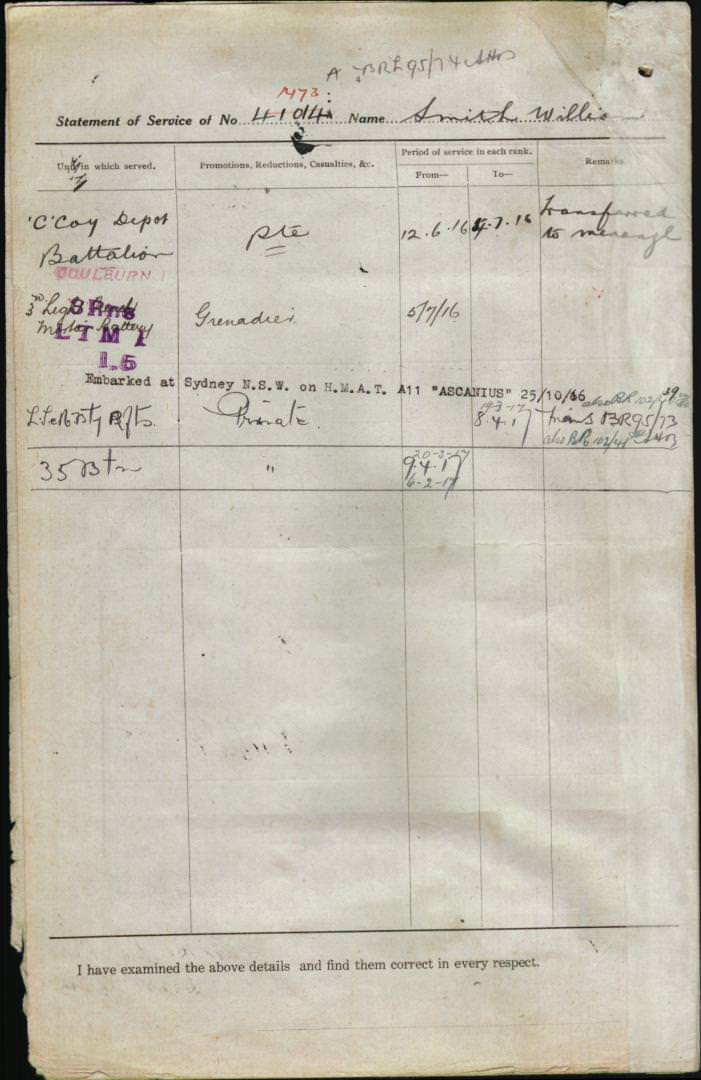 A BRL 95/74 AHQ
1473
Statement of Service of No 41014 Name Smith William
Unit in which served. Promotions, Reductions, Casualties, &c. Period of service in each rank. Remarks
From— To—
'C' Coy Depot Pte 12.6.16 4.7.16 transferred
Battalion to menangl
GOULBURN
3rd Light Grenadier 5/7/16
Mortar Battery
8 RTS
LTM
1.5
Embarked at Sydney N.S.W. on H.M.A.T. A11 "ASCANIUS" 25/10/16
also BR 102/
19-3-17
Rfts. Private. 8.4.17 Trans BR95/73
also BR 102/41
20-3-17
35 Btn " 9.4.17
6-2-17
I have examined the above details and find them correct in every respect.